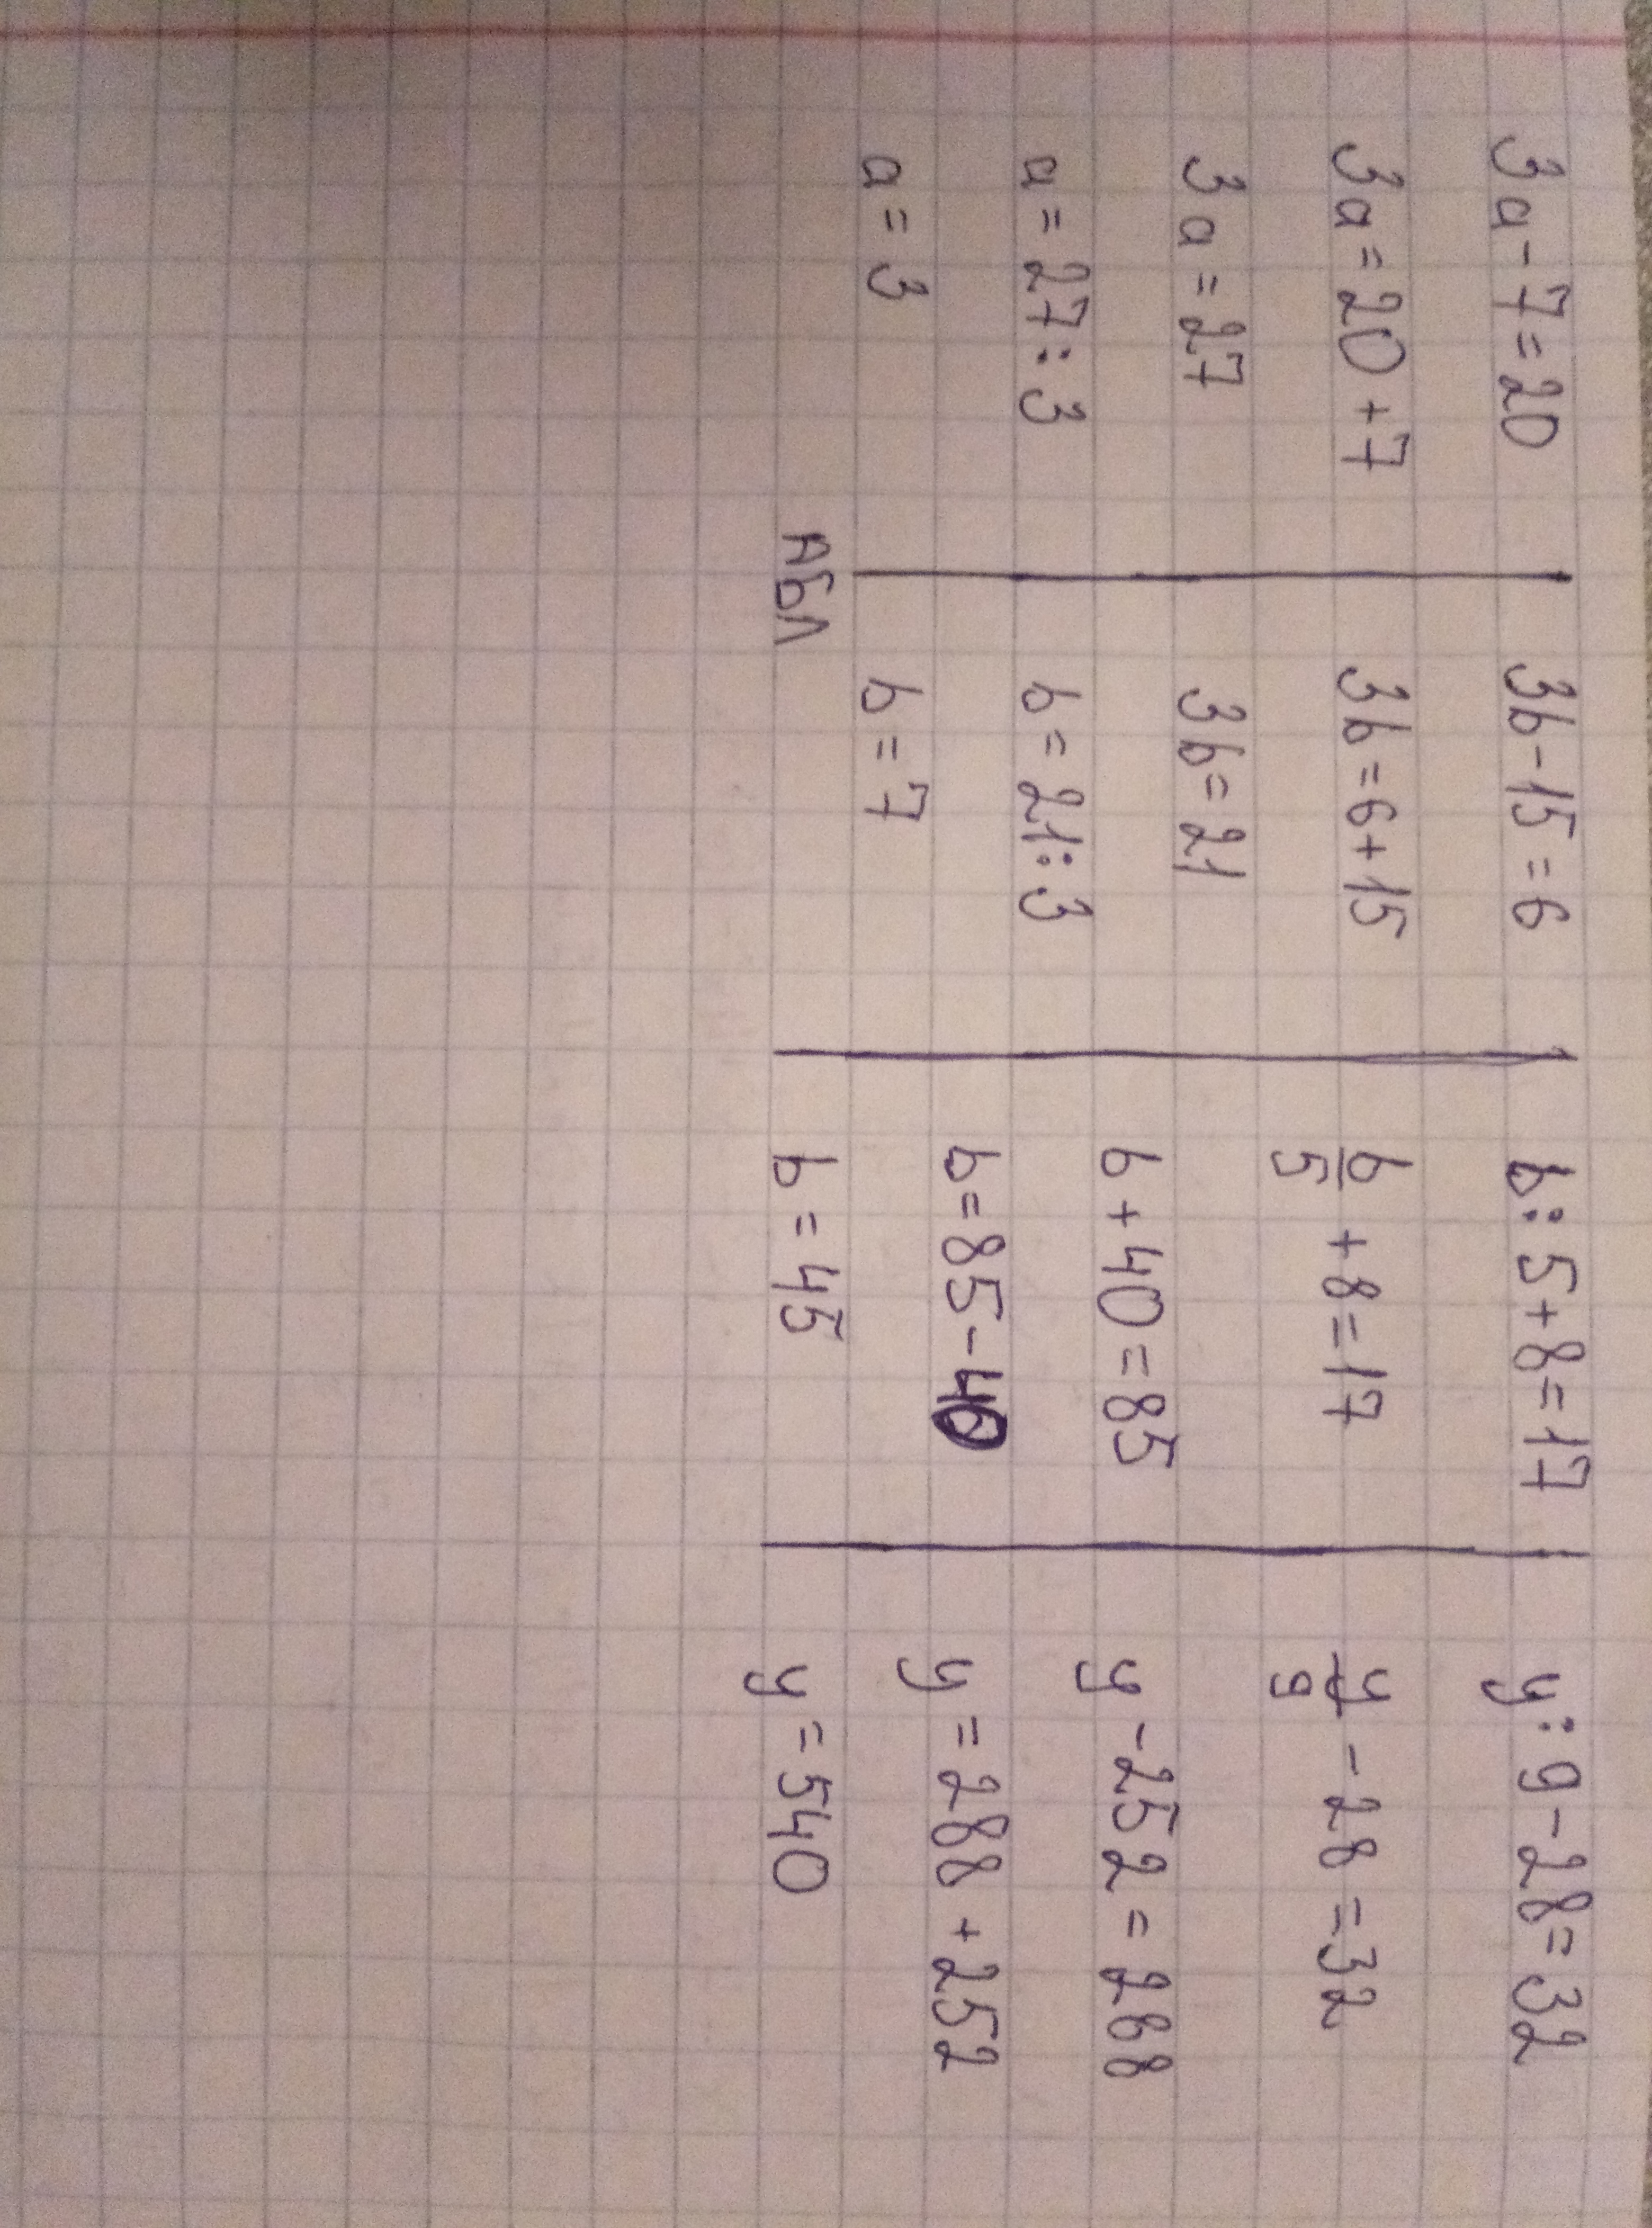 3a - 7 = 20
3a = 20 + 7
3a = 27
a = 27 : 3
a = 3
3b - 15 = 6
3b = 6 + 15
3b = 21
b = 21 : 3
b = 7
b : 5 + 8 = 17
b/5 + 8 = 17
b + 40 = 85
b = 85 - 40
b = 45
y : 9 - 28 = 32
y/9 - 28 = 32
y - 252 = 288
y = 288 + 252
y = 540